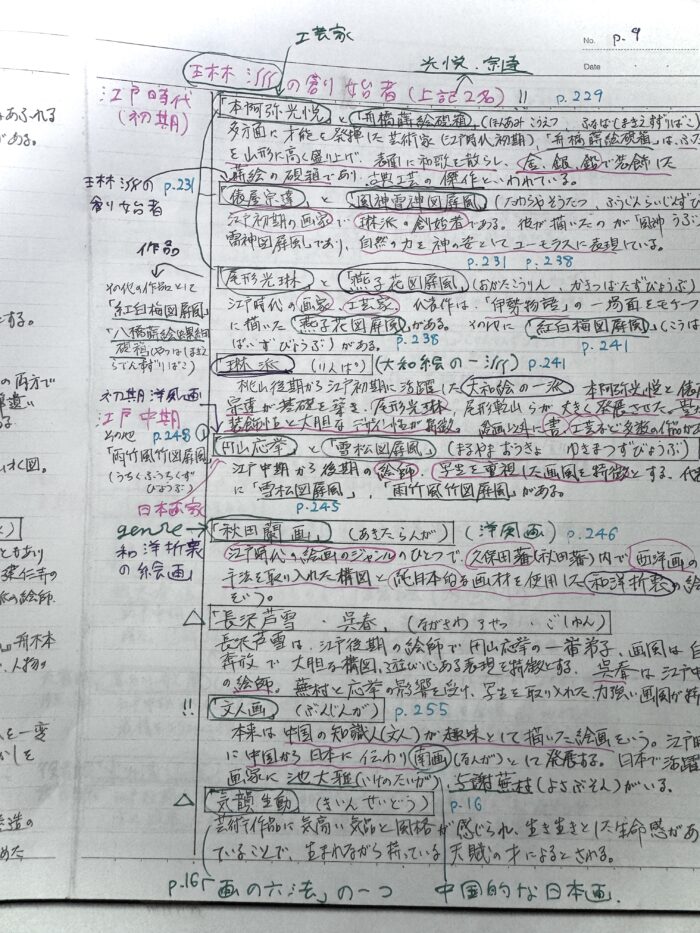 No. p.9
Date
工芸家
光悦・宗達
琳派の創始者(上記2名)!! p.229
江戸時代
(初期)
「本阿弥光悦」と「舟橋蒔絵硯箱」(ほんあみこうえつ、ふなばしまきえすずりばこ)
多方面に才能を発揮した芸術家(江戸時代初期)、「舟橋蒔絵硯箱」は、ふた
を山形に高く盛り上げ、表面に和歌を散らし、金、銀、鉛で装飾した
蒔絵の硯箱であり、古典工芸の傑作といわれている。
琳派の p.231
創始者
「俵屋宗達」と「風神雷神図屏風」(たわらやそうたつ、ふうじんらいじんずび
江戸初期の画家で琳派の創始者である。彼が描いたのが「風神
雷神図屏風」であり、自然の力を神の姿としてユーモラスに表現している。
p.231 p.238
作品
その他の作品として
「紅白梅図屏風」
「八橋蒔絵螺鈿
硯箱」(やつはしまきえ
らでんすずりばこ)
「尾形光琳」と「燕子花図屏風」(おがたこうりん、かきつばたずびょうぶ)
江戸時代の画家、工芸家、代表作は、「伊勢物語」の一場面をモチーフ
に描いた「燕子花図屏風」がある。その他に「紅白梅図屏風」(こうは
ばいずびょうぶ)がある。 p.238 p.241
琳派 (りんぱ) (大和絵の一派) p.241
桃山後期から江戸初期に活躍した大和絵の一派 本阿弥光悦と俵
宗達が基礎を築き、尾形光琳、尾形乾山らが大きく発展させた。
装飾性と大胆なデザイン性が特徴。絵画以外に書、工芸など多数の作品が
初期洋風画
江戸中期
その他 p.248 ①
「雨竹風竹図屏風」
(うちくふうちくず
びょうぶ)
日本画家
「円山応挙」と「雪松図屏風」(まるやまおうきょ ゆきまつずびょうぶ)
江戸中期から後期の絵師、写生を重視した画風を特徴とする、代
に「雪松図屏風」、「雨竹風竹図屏風」がある。
p.245
genre
和洋折衷
の絵画
「秋田蘭画」(あきたらんが) (洋風画) p.246
江戸時代の絵画のジャンルのひとつで、久保田藩(秋田藩)内で西洋画の
手法を取り入れた構図と純日本的な画材を使用した和洋折衷の絵
をいう。
△ 「長沢芦雪・呉春」(ながさわろせつ・ごしゅん)
長沢芦雪は、江戸後期の絵師で円山応挙の一番弟子、画風は自
奔放で大胆な構図、遊び心ある表現を特徴とする。呉春は江戸中
の絵師。蕪村と応挙の影響を受け、写生を取り入れた、力強い画風が特
!! 「文人画」(ぶんじんが) p.255
本来は中国の知識人(文人)が趣味として描いた絵画をいう。江戸
に中国から日本に伝わり南画(なんが)として発展する。日本で活躍
画家に池大雅(いけのたいが)、与謝蕪村(よさぶそん)がいる。
△ 「気韻生動」(きいんせいどう) p.16
芸術作品に気高い気品と風格が感じられ、生き生きとした生命感があ
ていることで、生まれながら持っている天賦の才によるとされる。
p.165 「画の六法」の一つ 中国的な日本画